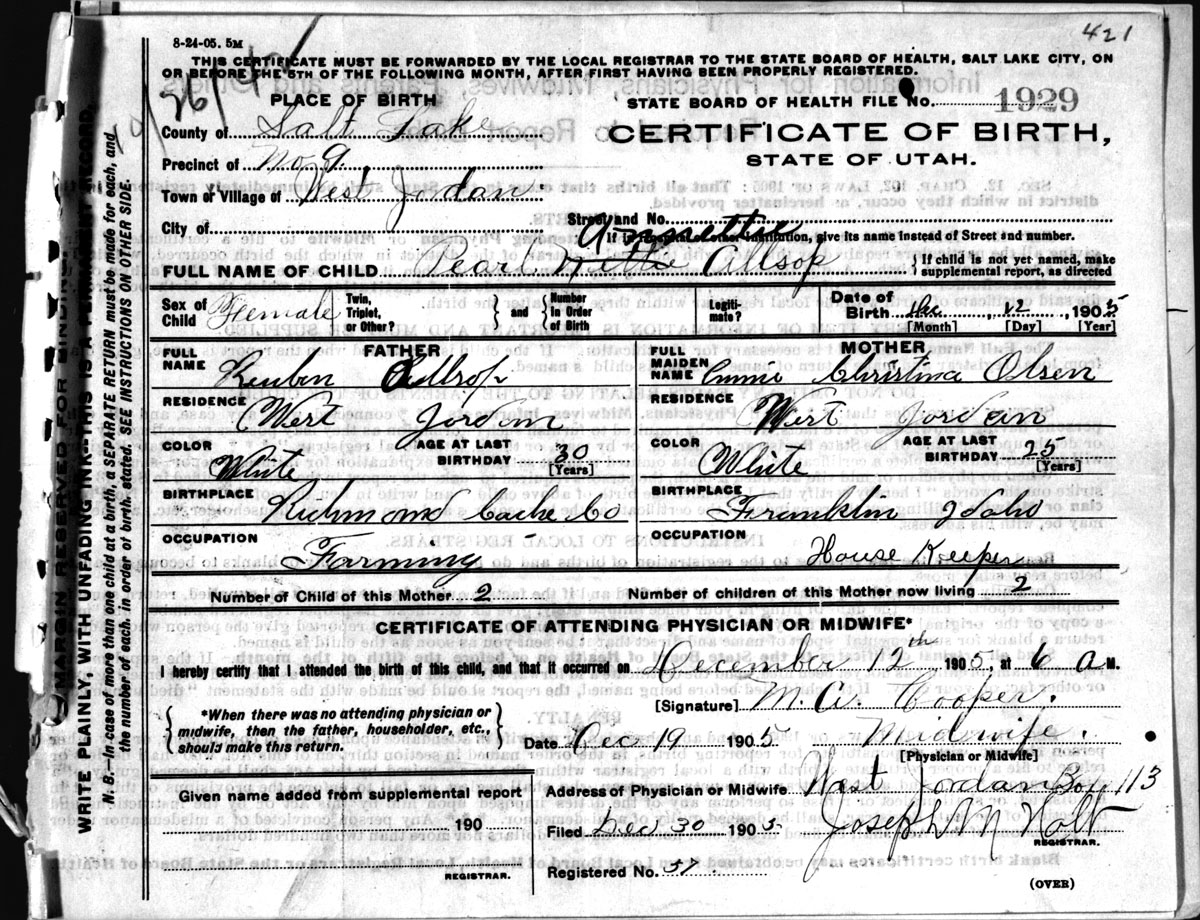 421
8-24-05. 5M
THIS CERTIFICATE MUST BE FORWARDED BY THE LOCAL REGISTRAR TO THE STATE BOARD OF HEALTH, SALT LAKE CITY, ON
OR BEFORE THE 5TH OF THE FOLLOWING MONTH, AFTER FIRST HAVING BEEN PROPERLY REGISTERED.
PLACE OF BIRTH
STATE BOARD OF HEALTH FILE No. 1929
County of Salt Lake
CERTIFICATE OF BIRTH,
Precinct of No 9.
STATE OF UTAH.
Town of Village of West Jordan
City of
Street and No.
If in Hospital or other Institution, give its name instead of Street and number.
FULL NAME OF CHILD Pearl Allsop
{ If child is not yet named, make
supplemental report, as directed
Sex of Child Female
Twin, Triplet, or Other? } and { Number In Order of Birth
Legitimate?
Date of Birth Dec 12, 1905
[Month] [Day] [Year]
FATHER
FULL NAME Reuben Allsop
MOTHER
FULL MAIDEN NAME Annie Christina Olsen
RESIDENCE West Jordan
RESIDENCE West Jordan
COLOR White AGE AT LAST BIRTHDAY 30 [Years]
COLOR White AGE AT LAST BIRTHDAY 25 [Years]
BIRTHPLACE Richmond Cache Co
BIRTHPLACE Franklin Idaho
OCCUPATION Farming
OCCUPATION House Keeper
Number of Child of this Mother 2
Number of children of this Mother now living 2
CERTIFICATE OF ATTENDING PHYSICIAN OR MIDWIFE*
I hereby certify that I attended the birth of this child, and that it occurred on December 12th 1905, at 6 a M.
[Signature] M. A. Cooper.
{ *When there was no attending physician or
midwife, then the father, householder, etc.,
should make this return. }
Date Dec 19 1905 Midwife.
[Physician or Midwife]
Given name added from supplemental report
190
REGISTRAR.
Address of Physician or Midwife West Jordan Box 113
Filed Dec 30 1905 Joseph M Holt
REGISTRAR.
Registered No. 57.
(OVER)
MARGIN RESERVED FOR BINDING.
WRITE PLAINLY, WITH UNFADING INK—THIS IS A PERMANENT RECORD.
N. B.—In case of more than one child at a birth, a SEPARATE RETURN must be made for each, and
the number of each, in order of birth, stated. SEE INSTRUCTIONS ON OTHER SIDE.